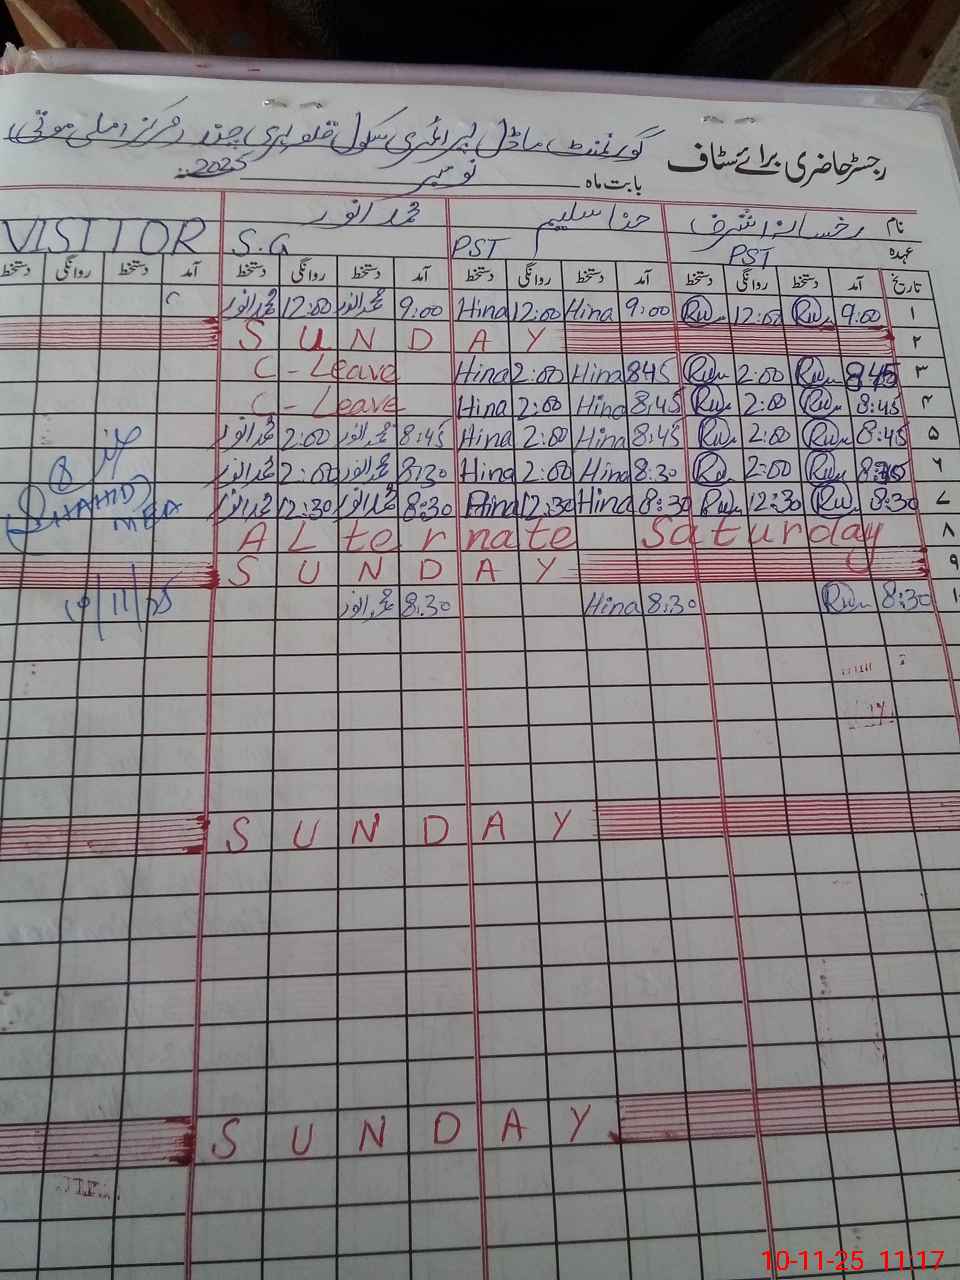 رجسٹر حاضری برائے سٹاف گورنمنٹ ماڈل پرائمری سکول قلو لہری چندر مرکز املی موتی
بابت ماہ نومبر 2025
نام رخسانہ اشرف حنا سلیم محمد انور
عہدہ PST PST S.G VISITOR
تاریخ آمد دستخط روانگی دستخط آمد دستخط روانگی دستخط آمد دستخط روانگی دستخط آمد دستخط روانگی دستخط
۱ 9:00 12:00 9:00 Hina 12:00 Hina 9:00 محمد انور 12:00 محمد انور
۲ SUNDAY
۳ 8:45 2:00 8:45 Hina 2:00 Hina C-Leave
۴ 8:45 2:00 8:45 Hina 2:00 Hina C-Leave
۵ 8:45 2:00 8:45 Hina 2:00 Hina 8:45 محمد انور 2:00 محمد انور
۶ 2:00 8:30 Hina 2:00 Hina 8:30 محمد انور 2:00 محمد انور
۷ 8:30 12:30 8:30 Hina 12:30 Hina 8:30 محمد انور 12:30 محمد انور
SHAHID
MEA
۸ ALternate Saturday
۹ SUNDAY
8:30 8:30 Hina 8:30 محمد انور
10/11/25
SUNDAY
SUNDAY
10-11-25 11:17